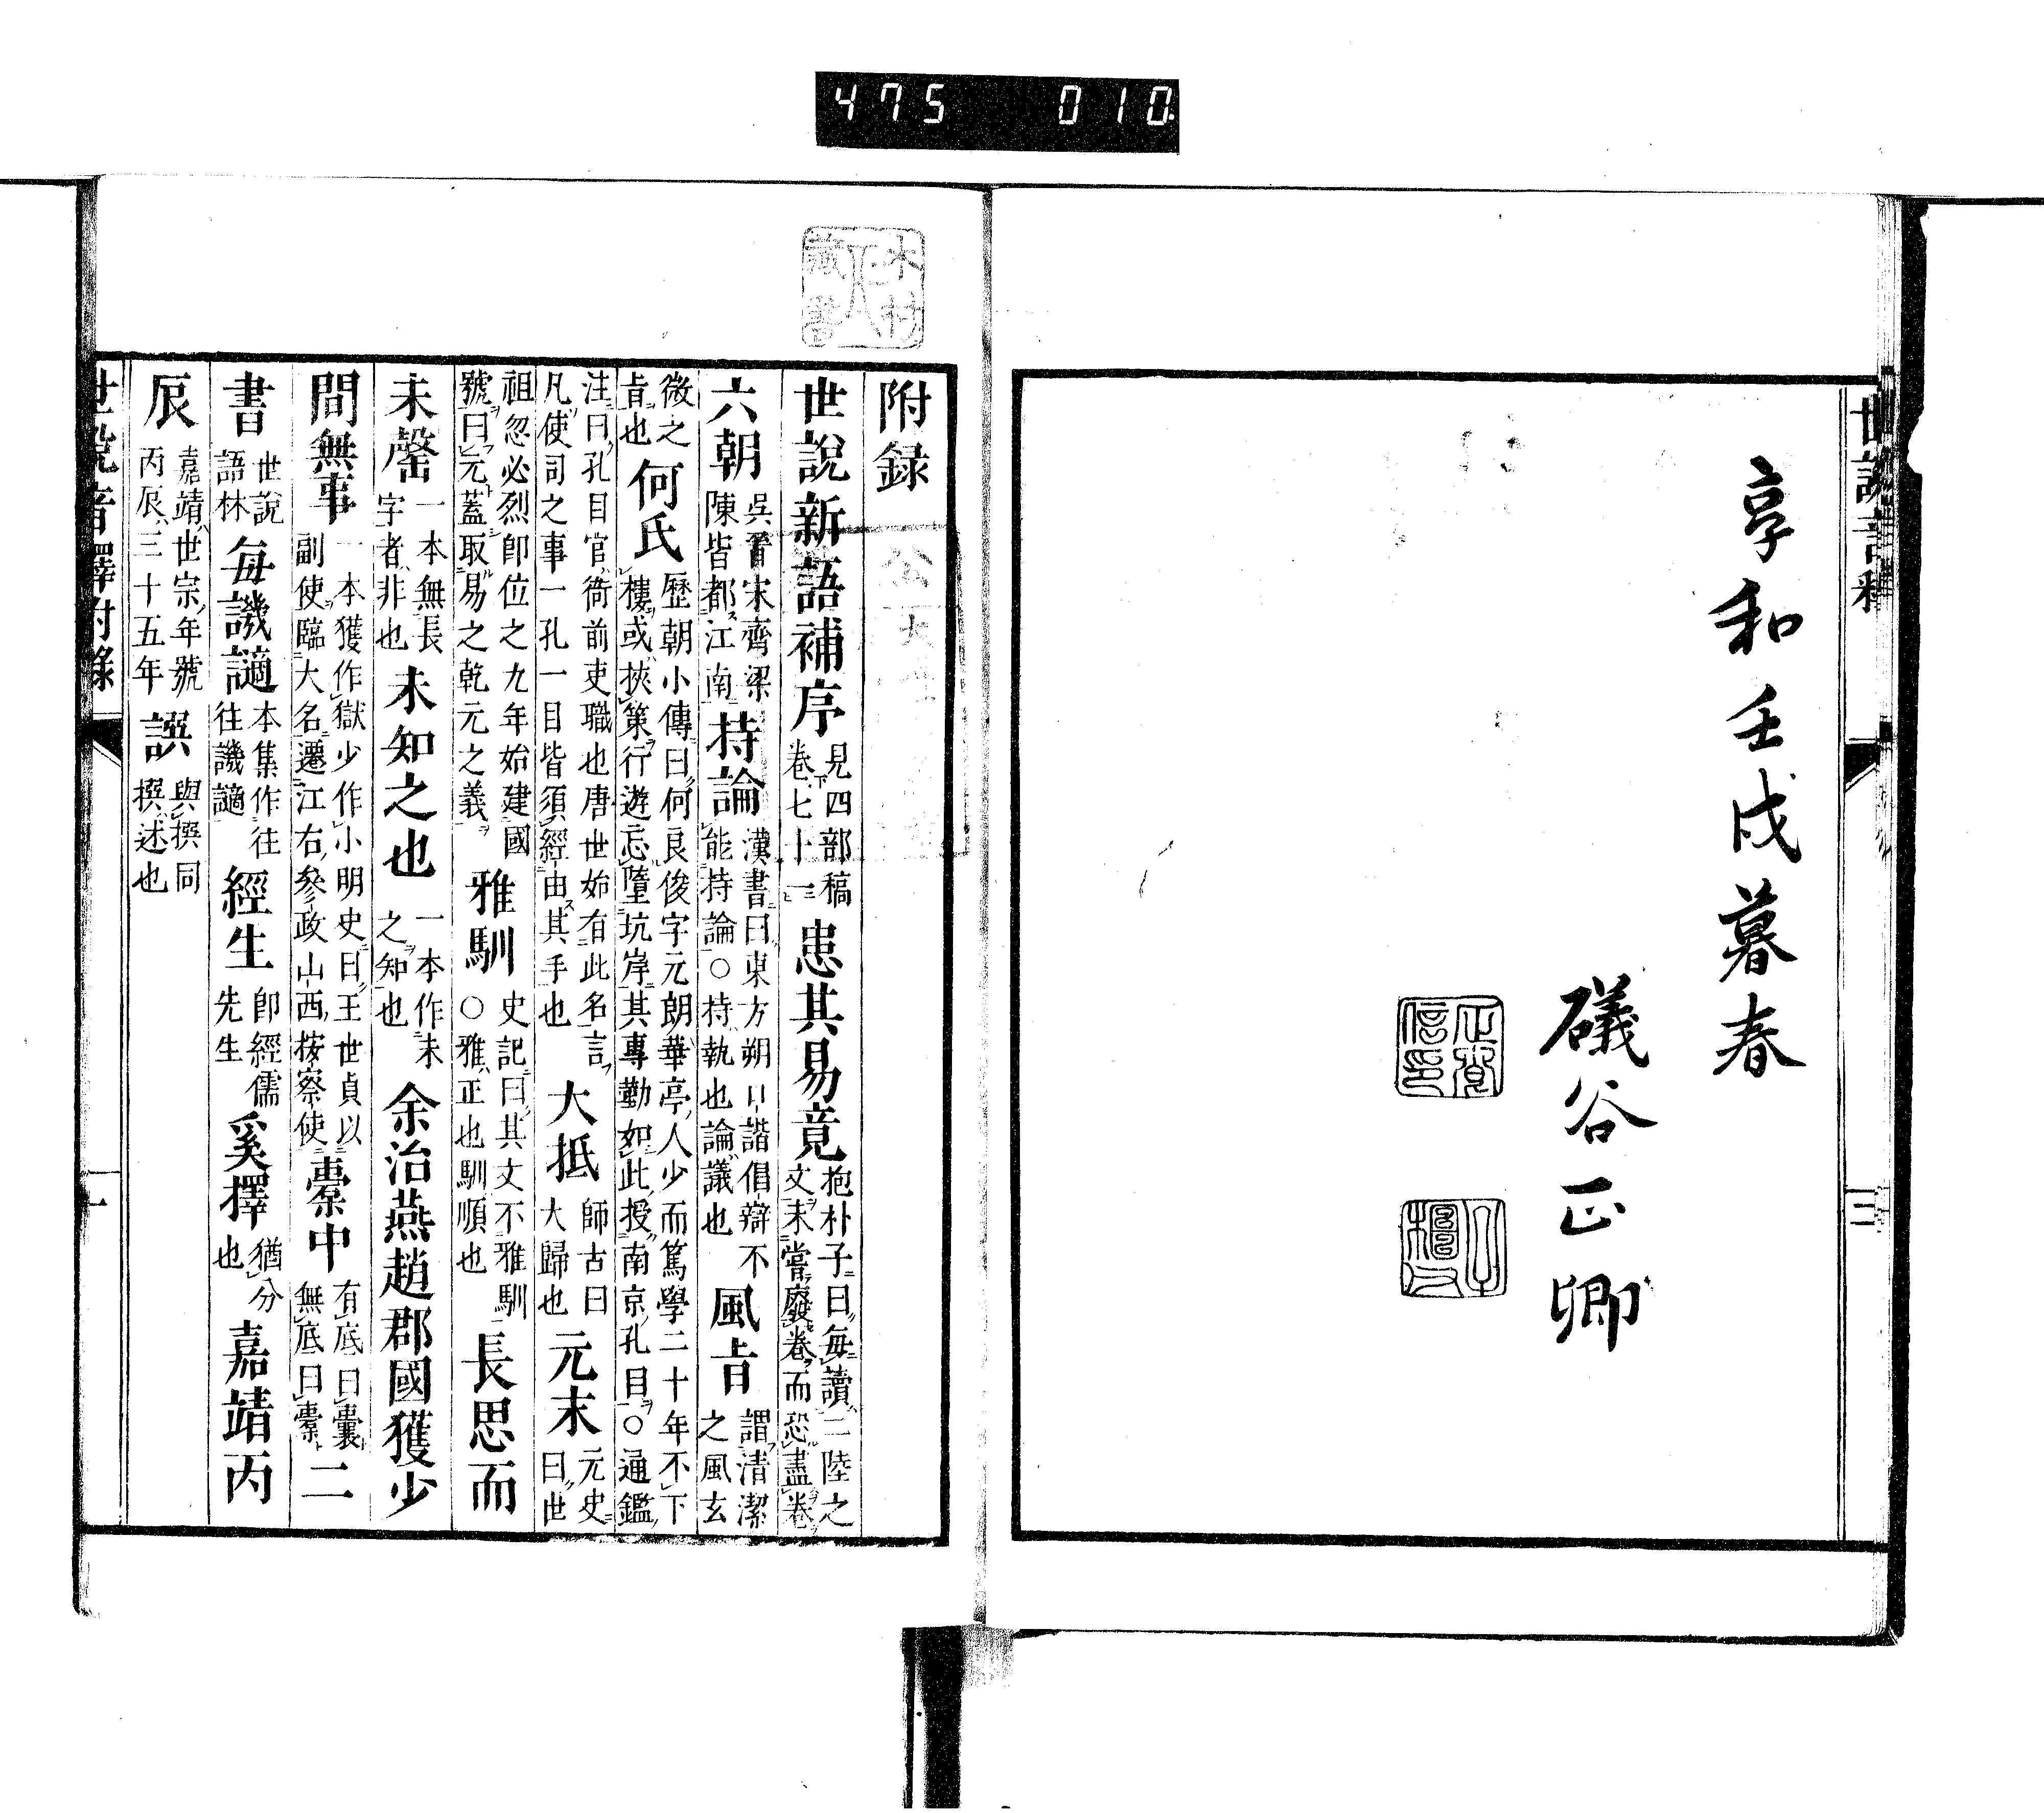 475 010
世說音釋
三
享和壬戌暮春
礒谷正卿
木村
藏書
附錄
世說新語補序 見四部稿卷七十一 患其易竟 抱朴子曰每讀二陸之文未嘗廢卷而恐盡卷
六朝 吳晉宋齊梁陳皆都江南 持論 漢書曰東方朔口諧倡辯不能持論○持執也論議也 風旨 謂清潔之風玄
微之旨也 何氏 歷朝小傳曰何良俊字元朗華亭人少而篤學二十年不下樓或挾策行遊忘墮坑岸其專勤如此授南京孔目○通鑑
注曰孔目官衙前吏職也唐世始有此名言凡使司之事一孔一目皆須經由其手也 大抵 師古曰大歸也 元末 元史曰世
祖忽必烈卽位之九年始建國號曰元蓋取易之乾元之義 雅馴 史記曰其文不雅馴○雅正也馴順也 長思而
未罄 一本無長字者非也 未知之也 一本作未之知也 余治燕趙郡國獲少
間無事 一本獲作獄少作小明史曰王世貞以副使臨大名遷江右參政山西按察使 橐中 有底曰囊無底曰橐 二
書 世說語林 每譏謫 本集作往往譏謫 經生 卽經儒先生 奚擇 猶分也 嘉靖丙
辰 嘉靖世宗年號丙辰三十五年 譔 與撰同撰述也
世說音釋附錄
一